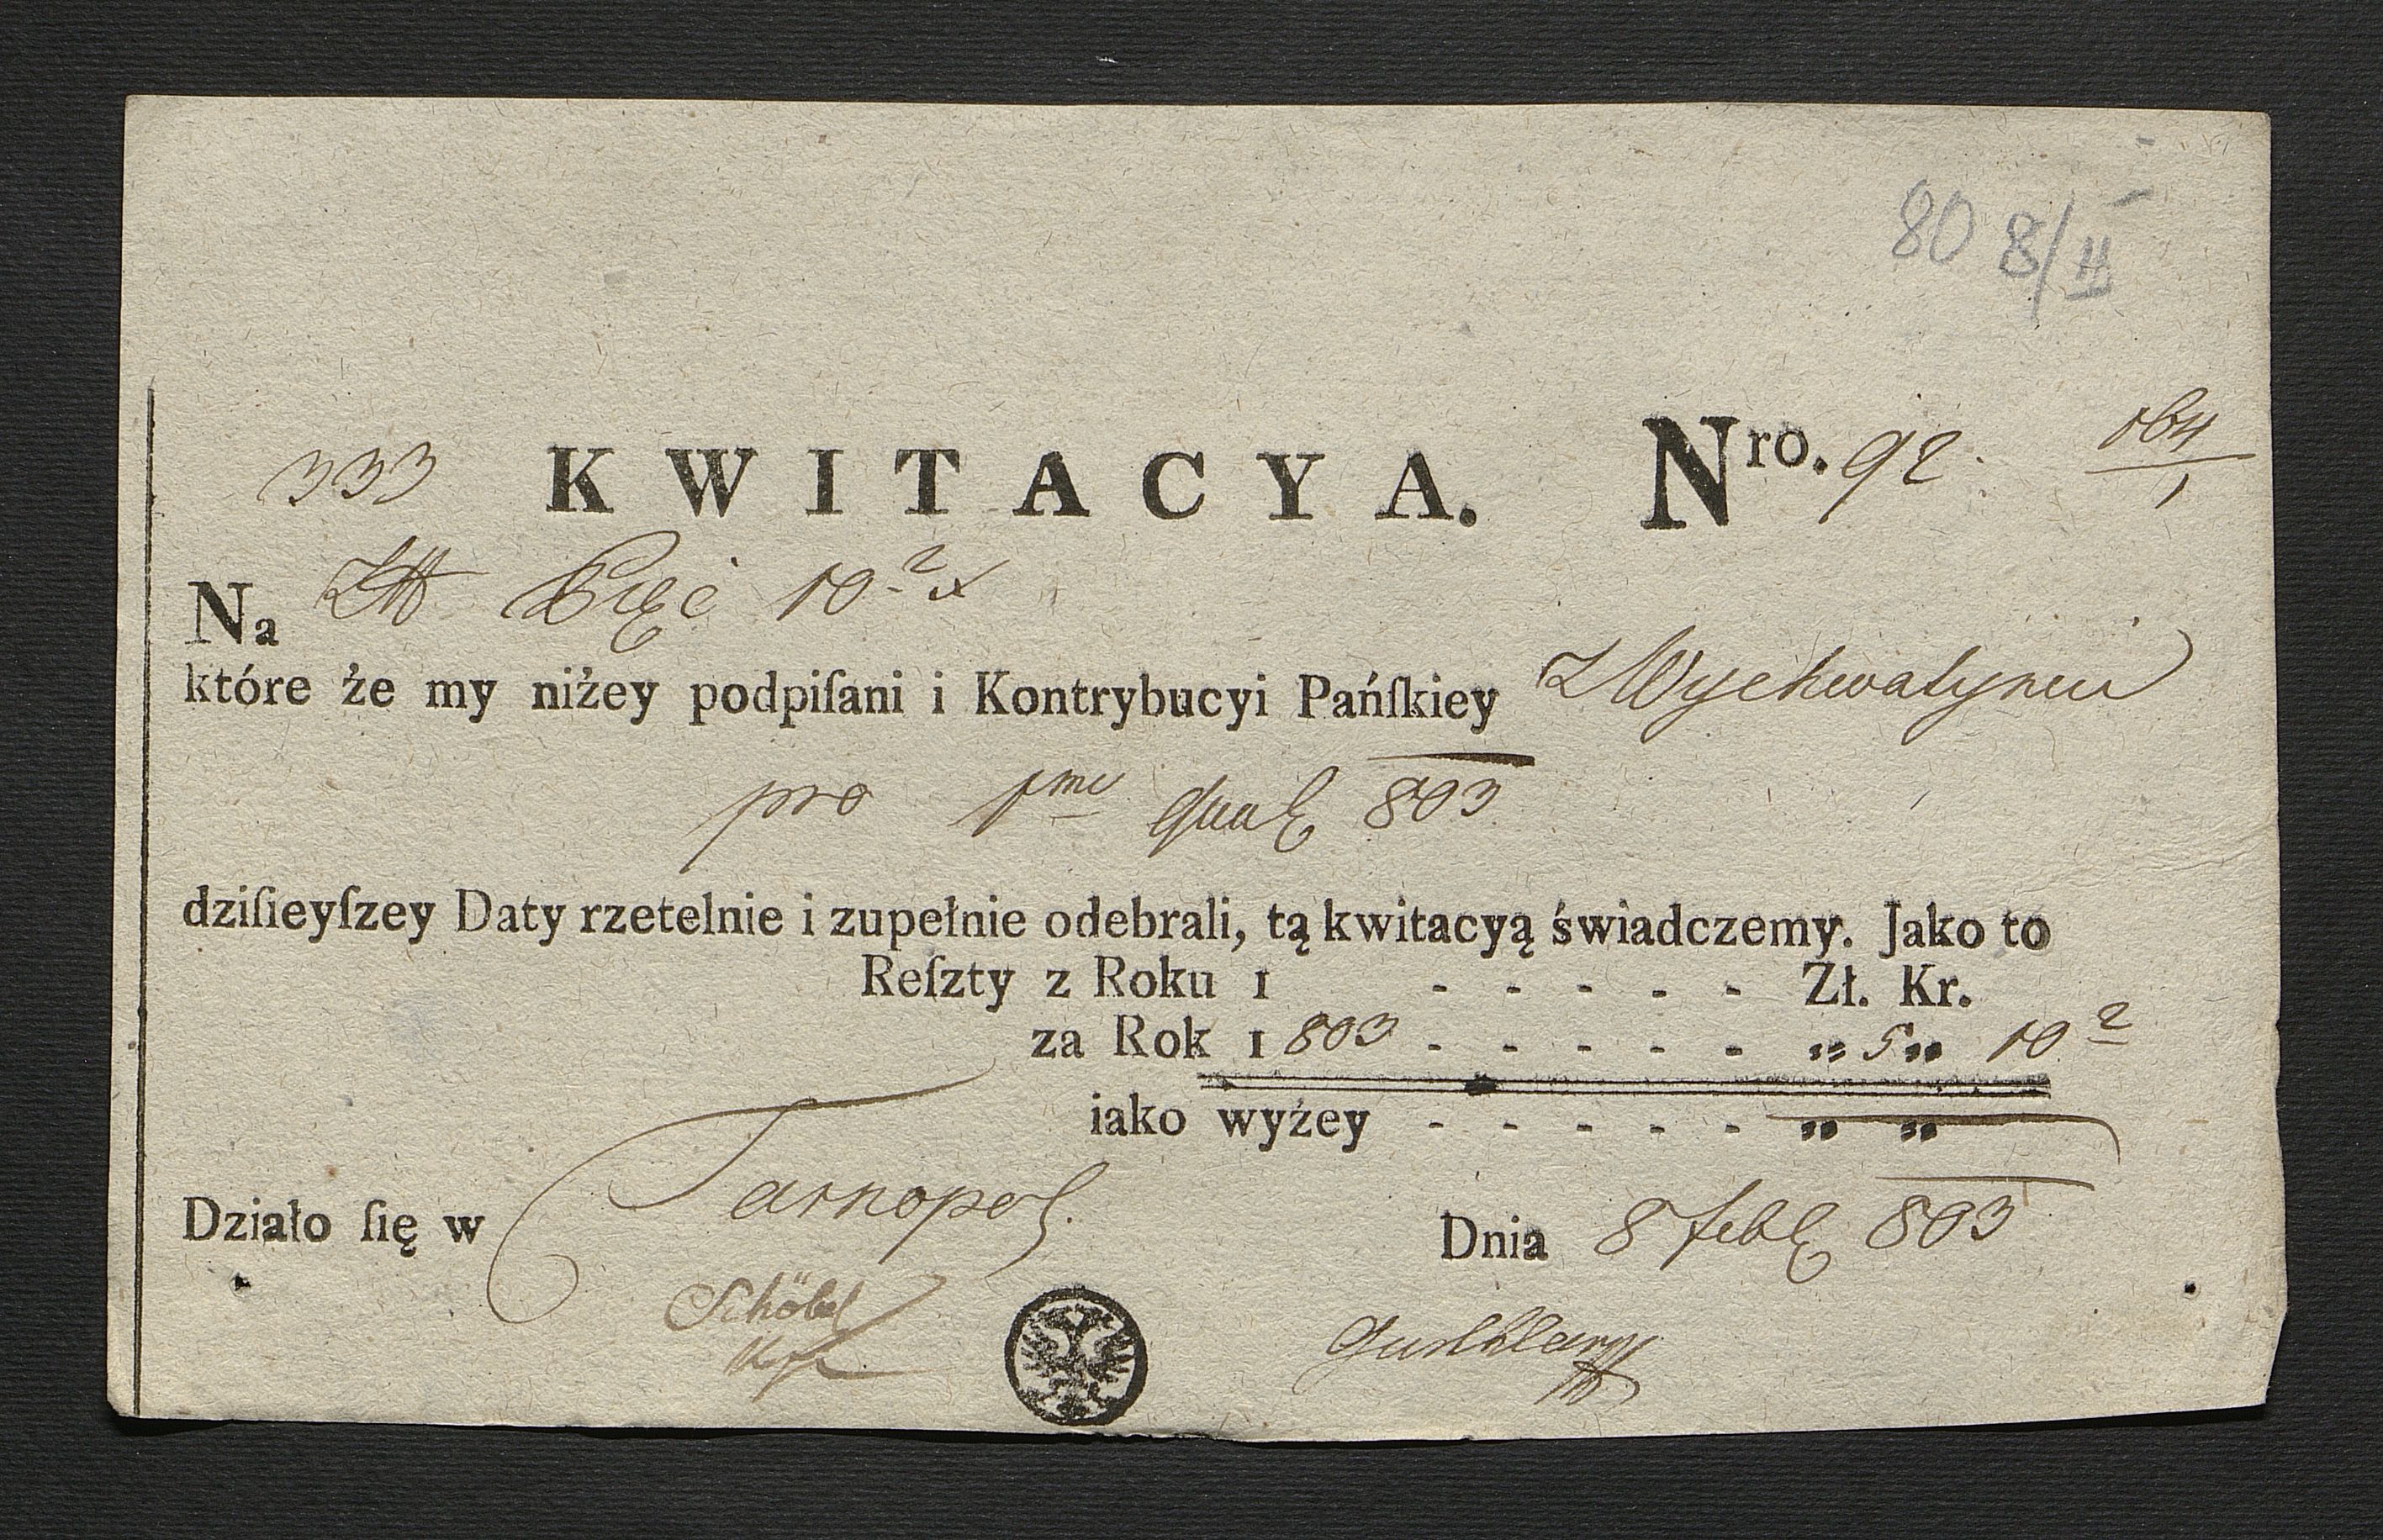 80 8/II
333 KWITACYA. Nro. 92.
Na Pięć 10 2 x
które że my niżey podpiſani i Kontrybucyi Pańſkiey z Wychwatyniec
pro 1mo 803
dziſieyſzey Daty rzetelnie i zupełnie odebrali, tą kwitacyą świadczemy. Jako to
Reſzty z Roku 1 - - - - - Zł. Kr.
za Rok 1803 - - - - - „ 5 „ 10 2
iako wyżey - - - - - „ „
Działo ſię w Tarnopol Dnia 8 febr 803
Schöbel